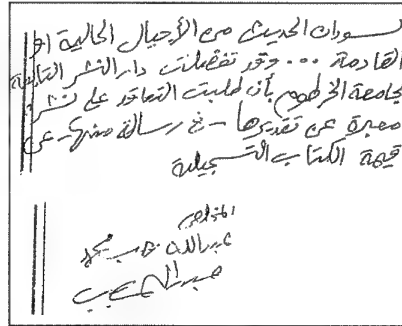 السودان الحديث من الأجيال الحالية أو
القادمة ... وقد تفضلت دار النشر التابعة
لجامعة الخرطوم بأن طلبت التعاقد على نشره
معبرة عن تقديرها - في رسالة منها - عن
قيمة الكتاب التسجيلية
المخلص
عبدالله رجب محمد
عبدالله رجب